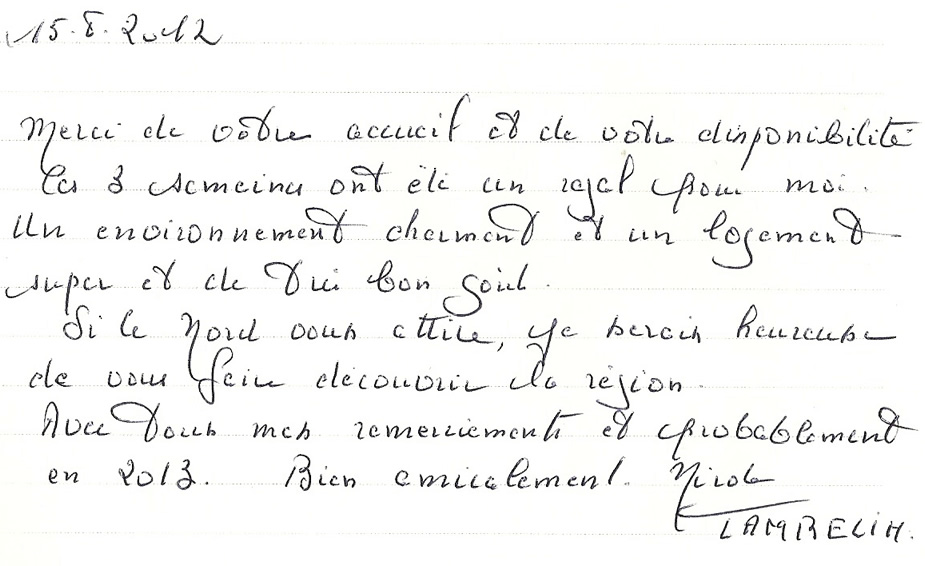 15.8.2012
Merci de votre accueil et de votre disponibilité
Ces 3 semaines ont été un régal pour moi.
Un environnement charmant et un logement
super et de très bon goût.
Si le Nord vous attire, je serais heureuse
de vous faire découvrir la région.
Avec tous mes remerciements et probablement
en 2013. Bien amicalement. Nicole
LAMBELIN.